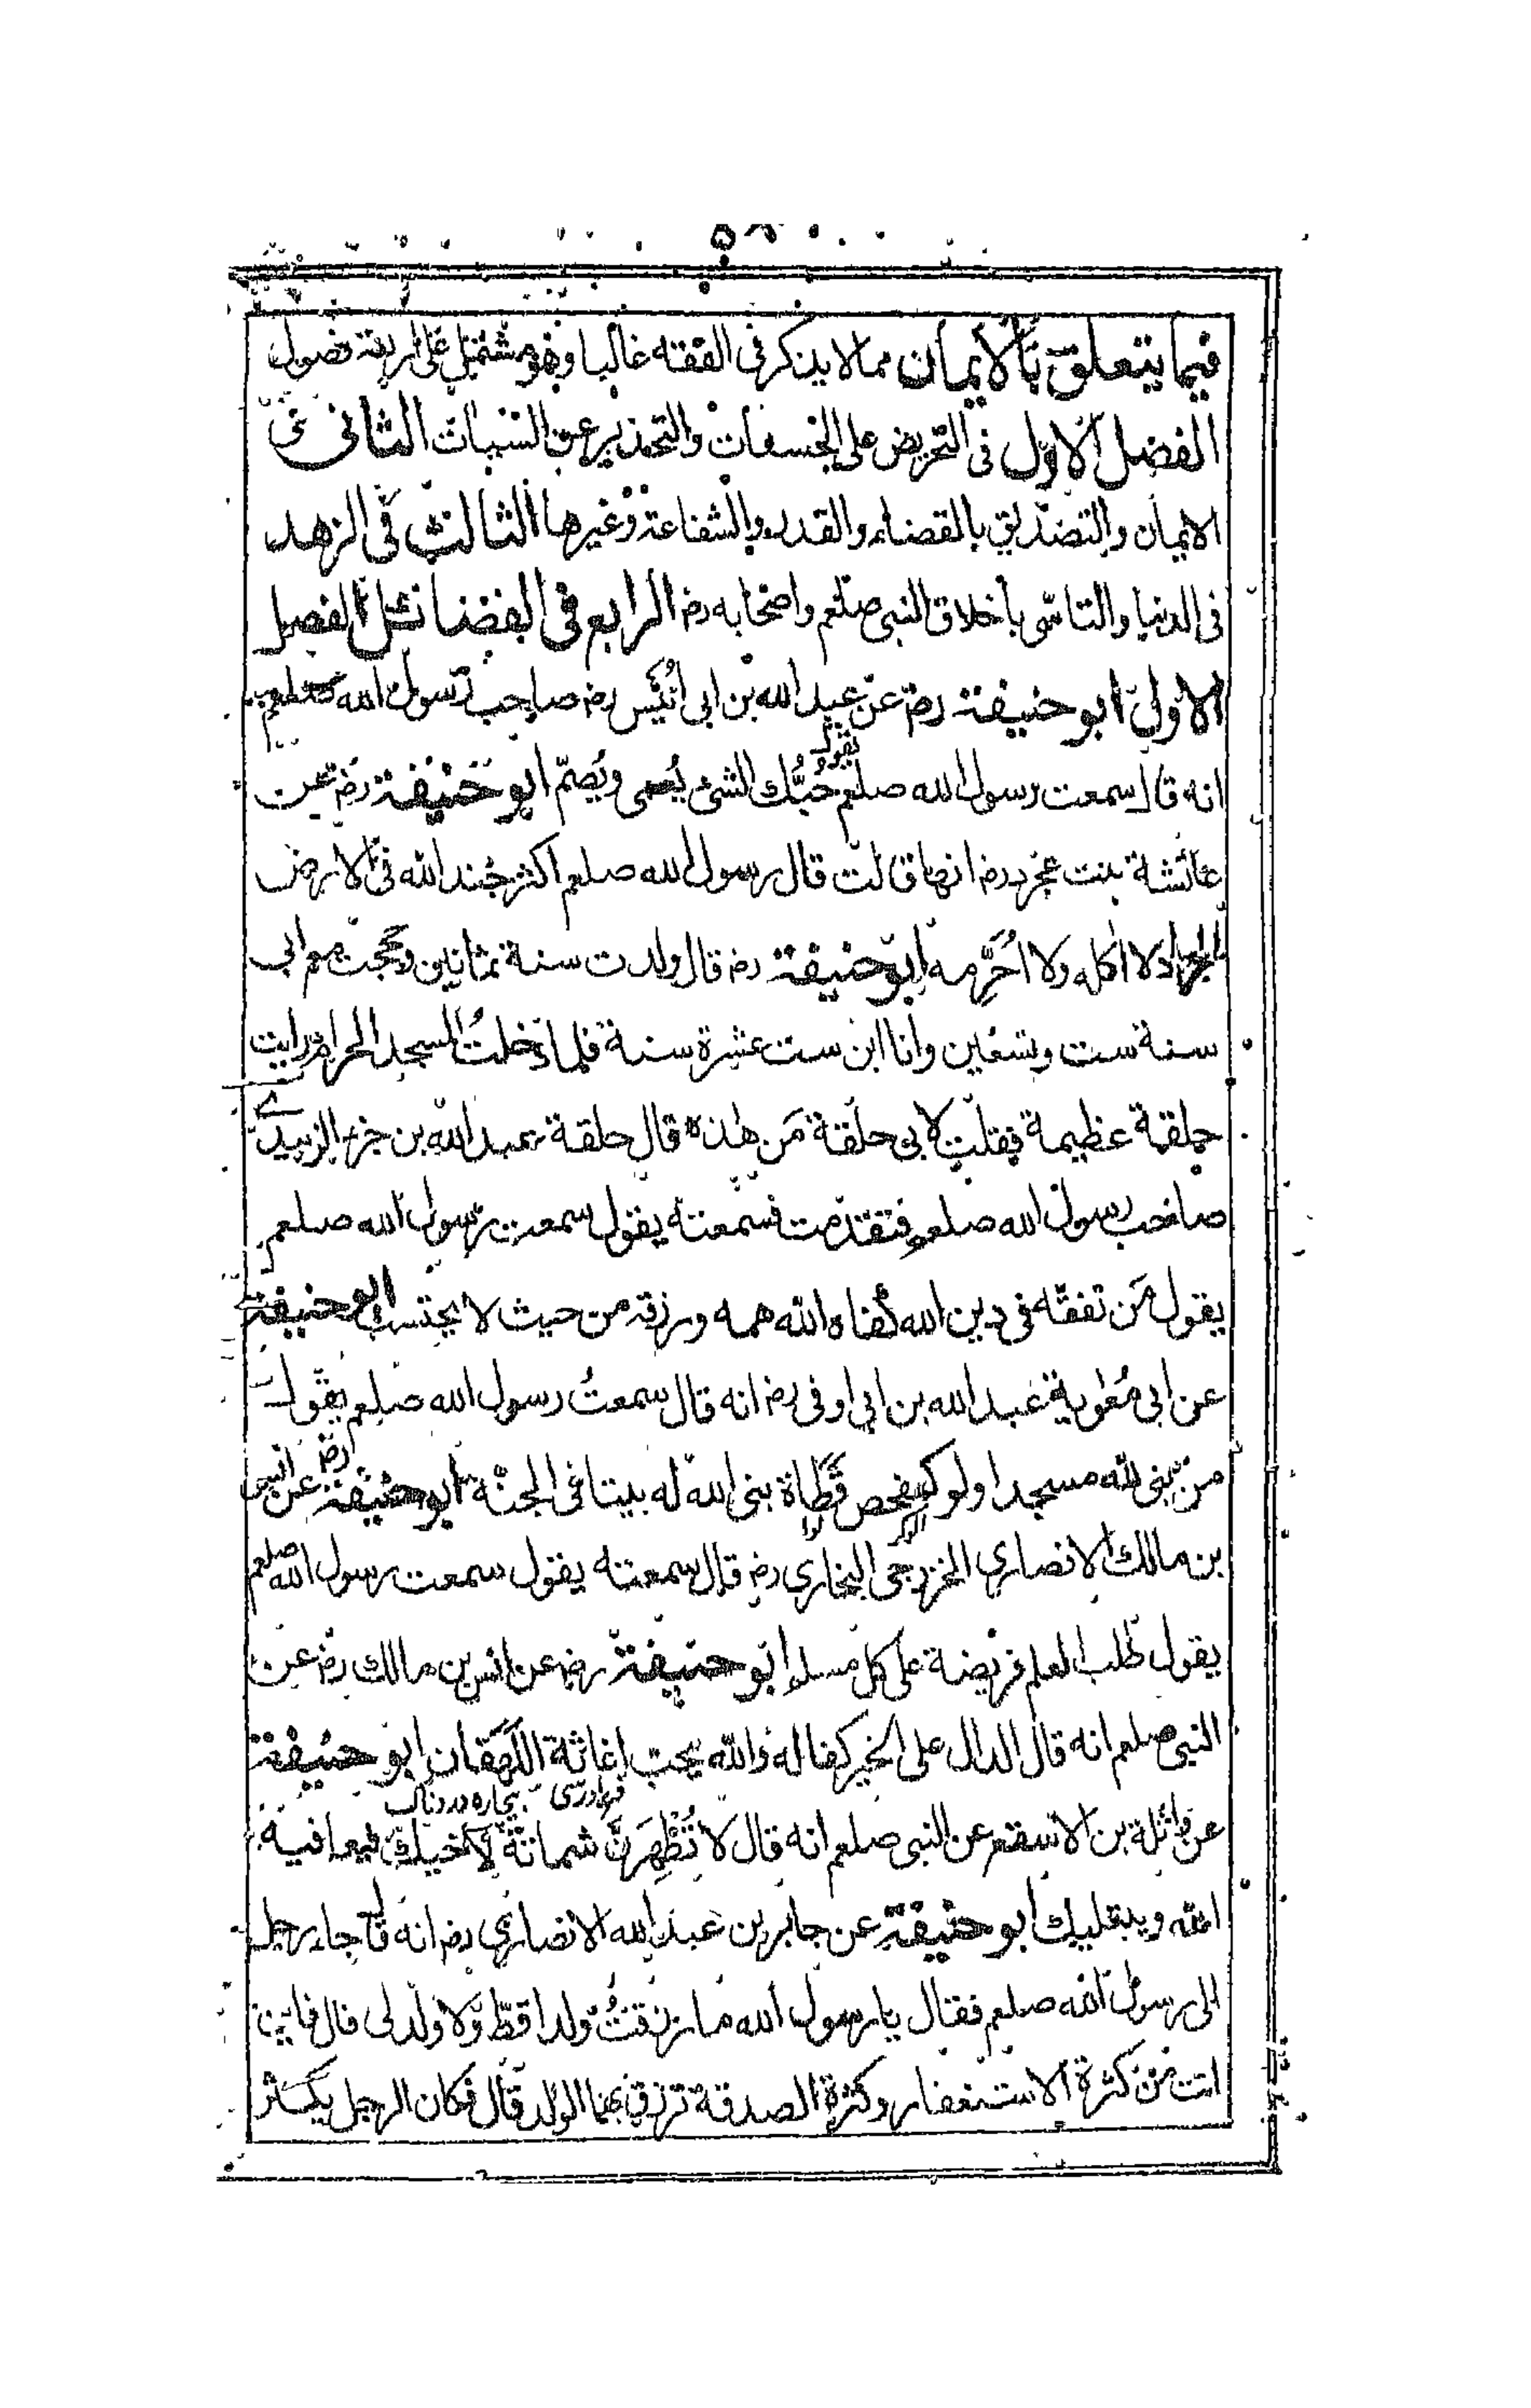 ٥٨
فيما يتعلق بالايمان مما لا يذكر فى الفقه غالبا وهو مشتمل على اربعة فصول
الفصل الاول فى التحريض على الحسنات والتحذير عن السيات الثانى فى
الايمان والتصديق بالقضاء والقدر والشفاعة وغيرها الثالث فى الزهد
فى الدنيا والتاسّى باخلاق النبى صلعم واصحابه رضـ الرابع فى الفضائل الفصل
الاول ابو حنيفة رضـ عن عبد الله بن ابى اُنَيْس رضـ صاحب رسول الله صلعم
انه قال سمعت رسول الله صلعم يقول حُبُّك الشئ يُعمى ويُصمّ ابو حنيفة رضـ عن
عائشة بنت عجرد رضـ انها قالت قال رسول الله صلعم اكثر جُند الله فى الارض
الجراد لا اٰكله ولا اُحَرِّمه ابو حنيفة رضـ قال ولدت سنة ثمانين وحججت مع ابى
سنة ست وتسعين وانا ابن ست عشرة سنة فلما دخلتُ المسجد الحرام رايت
حلقة عظيمة فقلت لابى حلقة مَن هٰذه قال حلقة عبد الله بن جزء الزبيدى
صاحب رسول الله صلعم فتقدمت فسمعته يقول سمعت رسول الله صلعم
يقول مَن تفقّه فى دين الله كفاه الله همه ورزقه من حيث لا يحتسب ابو حنيفة
عن ابى مُعٰوية عبد الله بن ابى اوفى رضـ انه قال سمعتُ رسول الله صلعم يقول
من بنى لله مسجدا ولو كمفحص قَطَاة بنى الله له بيتا فى الجنّة ابو حنيفة رضـ عن انس
بن مالك الانصارى الخزرجى النجارى رضـ قال سمعته يقول سمعت رسول الله صلعم
يقول طلب العلم فريضة على كل مسلم ابو حنيفة رضـ عن انس بن مالك رضـ عن
النبى صلعم انه قال الدال على الخير كفاله والله يحب اغاثة اللَّهَفان ابو حنيفة
فريادرسى بيچاره دردناك
عن واثلة بن الاسقع عن النبى صلعم انه قال لا تُظْهِرَنَّ شماتةً لاخيك فيعافيه
الله ويبتليك ابو حنيفة عن جابر بن عبد الله الانصارى رضـ انه قال جاء رجل
الى رسول الله صلعم فقال يا رسول الله ما رزقتُ ولدا قطّ ولا ولد لى قال فاين
انت من كثرة الاستغفار وكثرة الصدقة ترزق بهما الولد قال فكان الرجل يكثر